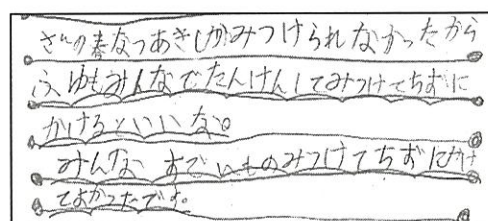 ざの春なつあきしかみつけられなかったから
ふゆもみんなでたんけんしてみつけてちずに
かけるといいな。
みんな すでいものみつけてちずにかけ
てよかったです。